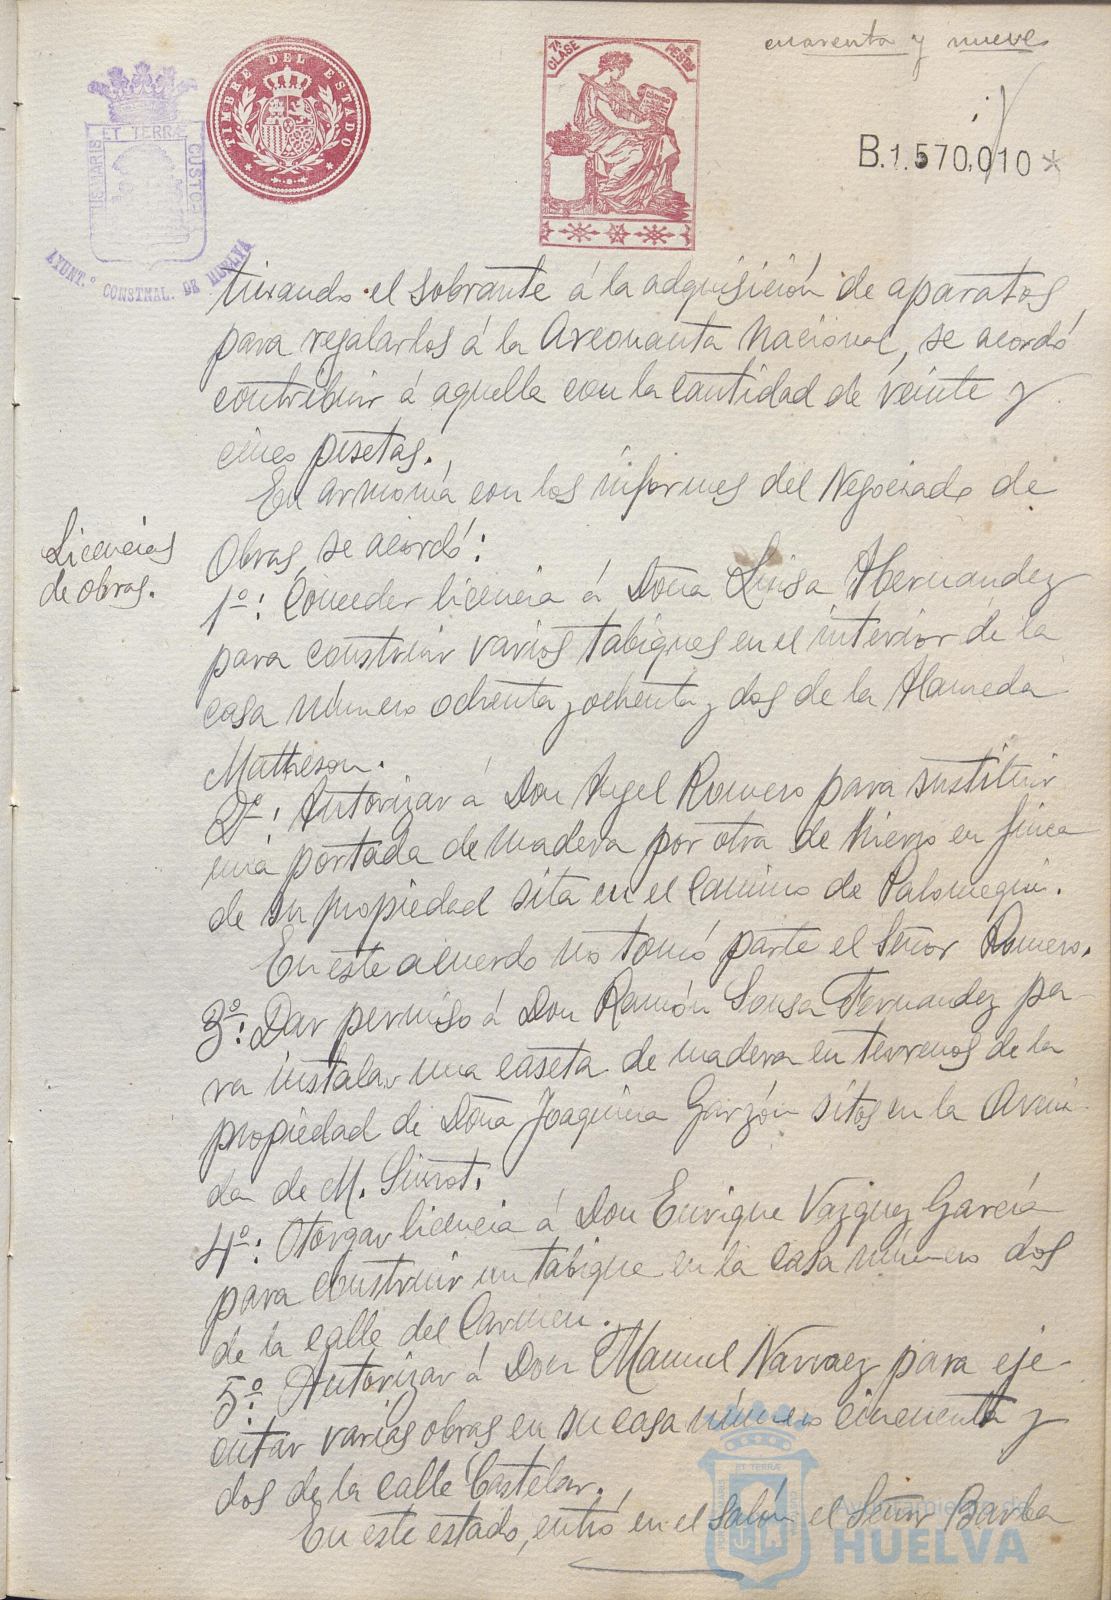 cuarenta y nueve
TIMBRE DEL ESTADO
7ª CLASE
PESTAS
B.1.570,010*
ET TERRÆ
CUSTOS
AYUNT.º CONSTNAL. DE HUELVA
el sobrante á la adquisición de aparatos
para regalarlos á la Areonauta Nacional, se acordó
contribuir á aquella con la cantidad de veinte y
cinco pesetas.
En armonía con los informes del Negociado de
Licencias
de obras.
Obras, se acordó:
1º: Conceder licencia á Doña Luisa Hernandez
para construir varios tabiques en el interior de la
casa número ochenta y ochenta y dos de la Alameda
Mattheson.
2º: Autorizar á Don Angel Romero para sustituir
una portada de madera por otra de hierro en finca
de su propiedad sita en el Camino de Palomeque.
En este acuerdo no tomó parte el Señor Romero.
3º: Dar permiso á Don Ramón Sousa Fernandez pa-
ra instalar una caseta de madera en terrenos de la
propiedad de Doña Joaquina Garzón sitos en la Aveni-
da de M. Siurot.
4º: Otorgar licencia á Don Enrique Vazquez García
para construir un tabique en la casa número dos
de la calle del Carmen.
5º: Autorizar á Don Manuel Narvaez para eje-
cutar varias obras en su casa número cincuenta y
dos de la calle Castelar.
En este estado, entró en el salón el Señor Barba
Ayuntamiento de
HUELVA